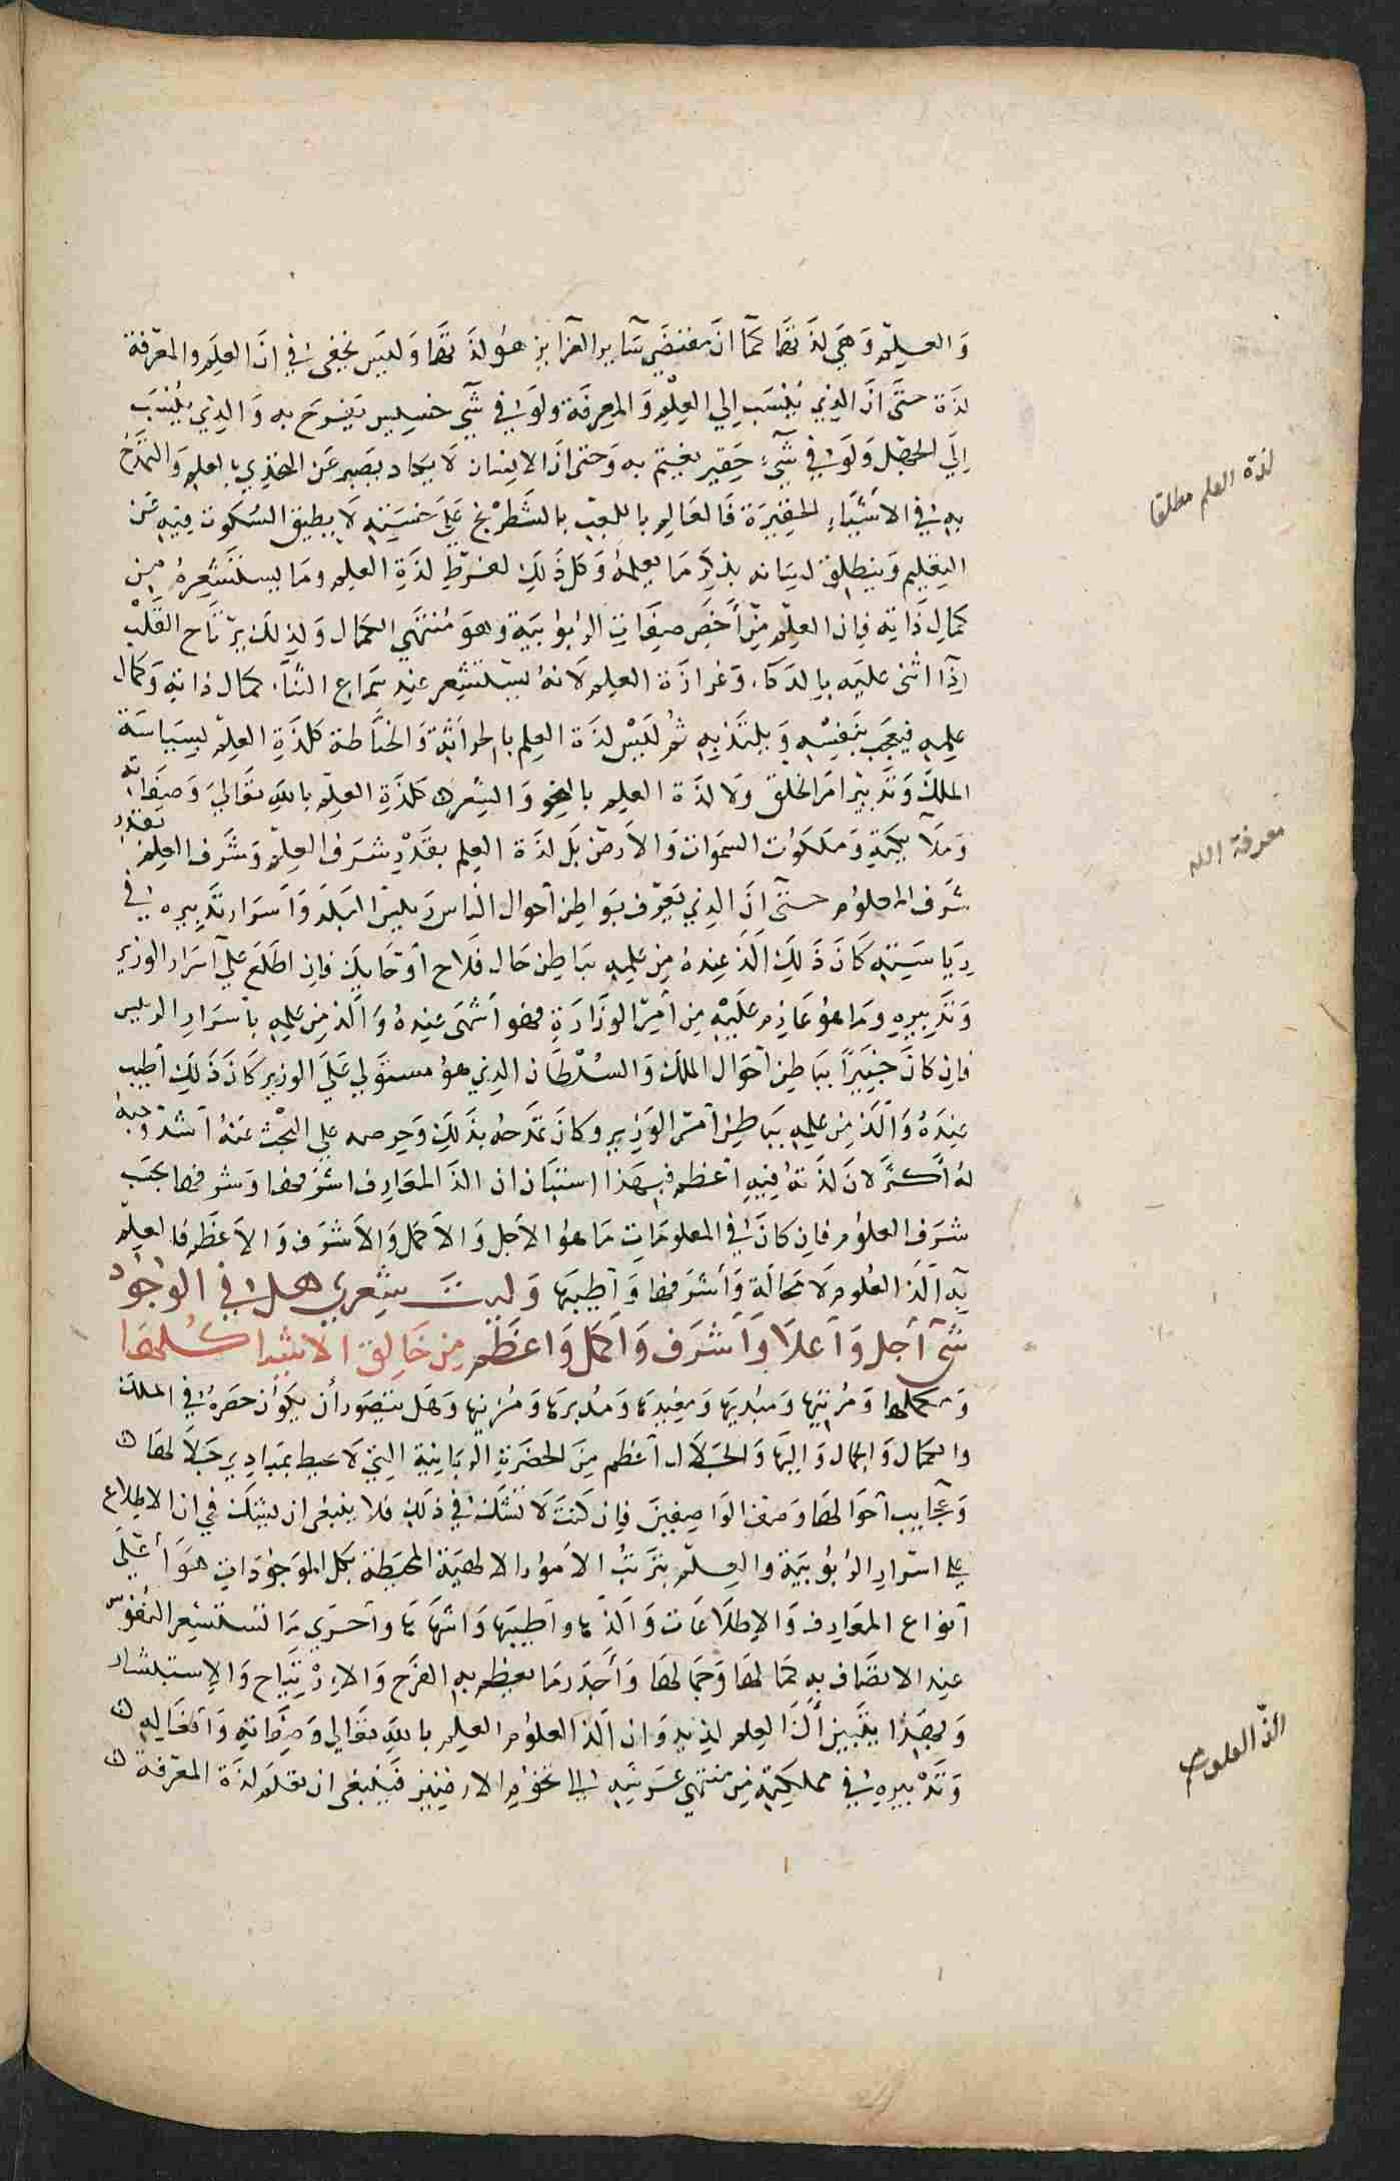 والعلم وهي لذتها كما ان مقتضي ساير الغرايز هو لذتها وليس يخفى في ان العلم والمعرفة
لذة حتى ان الذي ينسب الي العلم والمعرفة ولو في شي خسيس يفرح به والذي ينسب
الي الجهل ولو في شيء حقير يغتم به وحتى ان الانسان لا يكاد يصبر عن التحدي بالعلم والتمدح
به في الاشياء الحقيرة فالعالم باللعب بالشطرنج علي خسته لا يطيق السكوت فيه عن
التعليم وينطلق لسانه بذكر ما يعلمه وكل ذلك لفرط لذة العلم وما يستشعره من
كمال ذاته فان العلم من أخص صفات الربوبية وهو منتهي الكمال ولذلك يرتاح القلب
اذا اثني عليه بالدكا وغزارة العلم لانه يستشعر عند سماع الثنا كمال ذاته وكمال
علمه فيعجب بنفسه ويلتذ به ثم ليس لذة العلم بالحراثة والخياطة كلذة العلم بسياسة
الملك وتدبير امر الخلق ولا لذة العلم بالنحو والشعر كلذة العلم بالله تعالي وصفاته
وملايكته وملكوت السموات والارض بل لذة العلم بقدر شرف العلم وشرف العلم بقدر
شرف المعلوم حتى ان الذي يعرف بواطن احوال الناس رييس البلد واسرار تدبيره في
رياسته كان ذلك الذ عنده من علمه بباطن حال فلاح او حايك فان اطلع علي اسرار الوزير
وتدبيره وما هو عازم عليه من امر الوزارة فهو اشهى عنده والذ من علمه باسرار الرييس
فان كان خبيرا بباطن احوال الملك والسلطان الذي هو مستولي علي الوزير كان ذلك اطيب
عنده والذ من علمه بباطن امر الوزير وكان تمدحه بذلك وحرصه علي البحث عنه اشد وحبه
له اكثر لان لذته فيه اعظم فبهذا استبان ان الذ المعارف اشرفها وشرفها بحسب
شرف العلوم فان كان في المعلومات ما هو الاجل والاكمل والاشرف والاعظم فالعلم
به الذ العلوم لا محالة واشرفها واطيبها وليت شعري هل في الوجود
شي اجل واعلا واشرف واكمل واعظم من خالق الاشيا كلها
ومكملها ومزينها ومبديها ومعيدها ومدبرها ومزينها وهل يتصور أن يكون حضرة في الملك
والكمال والجمال والبها والجلال اعظم من الحضرة الربانية التي لا يحيط بمبادي جلالها
وعجايب احوالها وصف الواصفين فان كنت لا تشك في ذلك فلا ينبغي ان يشك في ان الاطلاع
علي اسرار الربوبية والعلم بترتب الامور الالهية المحيطة بكل الموجودات هو أعلي
انواع المعارف والاطلاعات والذها واطيبها واشهاها واحرى ما تستشعر النفوس
عند الاتصاف به كمالها وجمالها واجدر ما يعظم به الفرح والارتياح والاستبشار
وبهذا يتبين أن العلم لذيذ وان الذ العلوم العلم بالله تعالي وصفاته وافعاله
وتدبيره في مملكته من منتهي عرشه الي تخوم الارضين فينبغي ان يعلم لذة المعرفة
لذة العلم مطلقا
معرفة الله
الذ العلوم